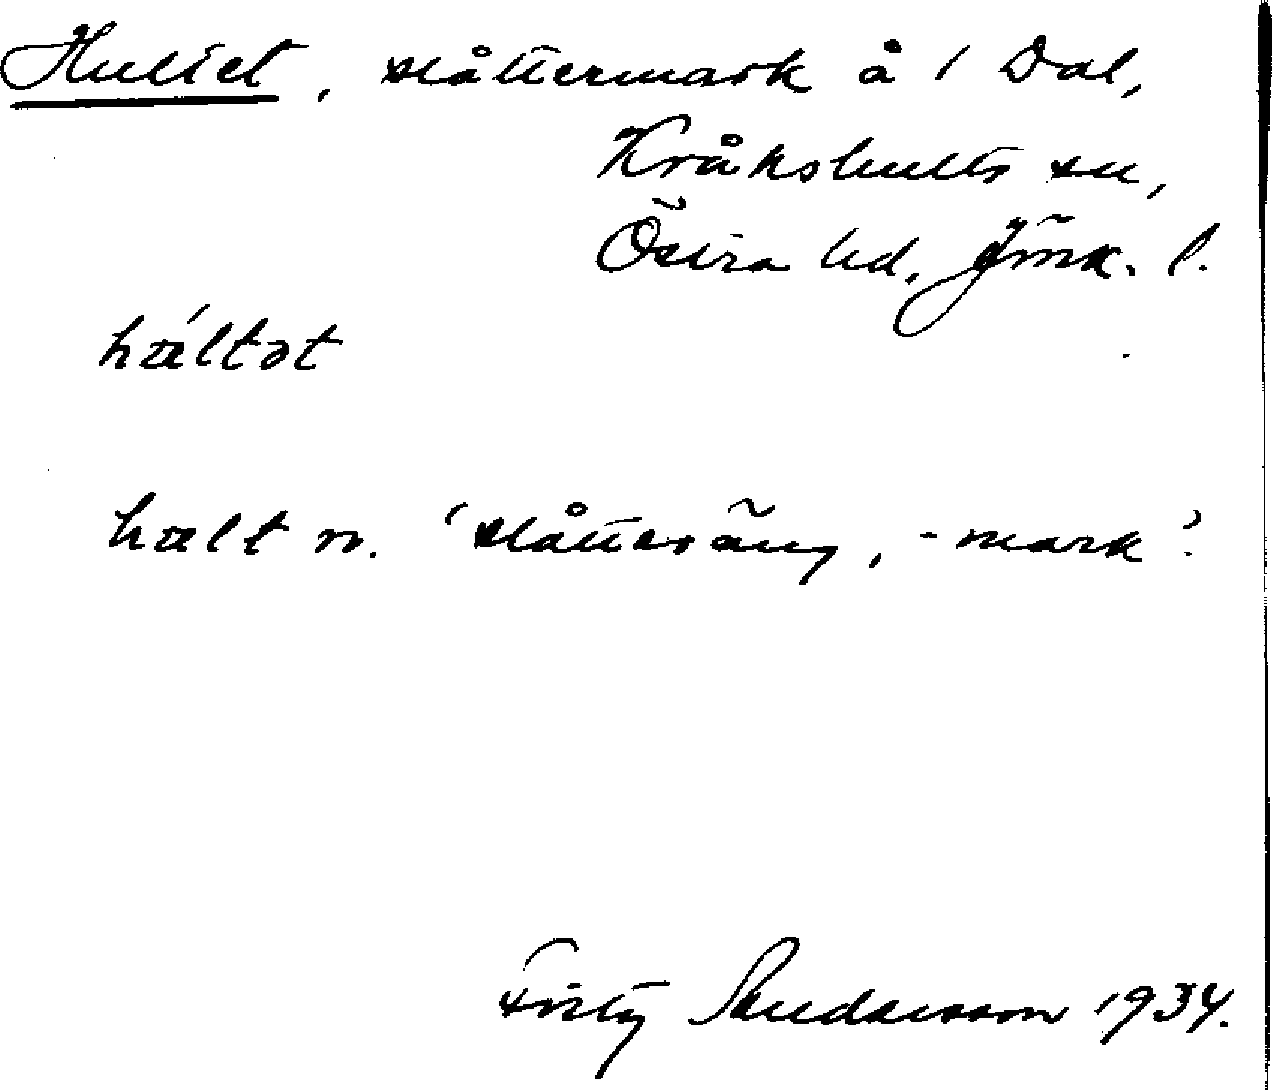 Hultet, slåttermark å 1 Dal,
Kråkshults sn,
Östra hd, Jönk. l.
hǽltət
hælt n. 'slåtteräng, -mark'.
1934.